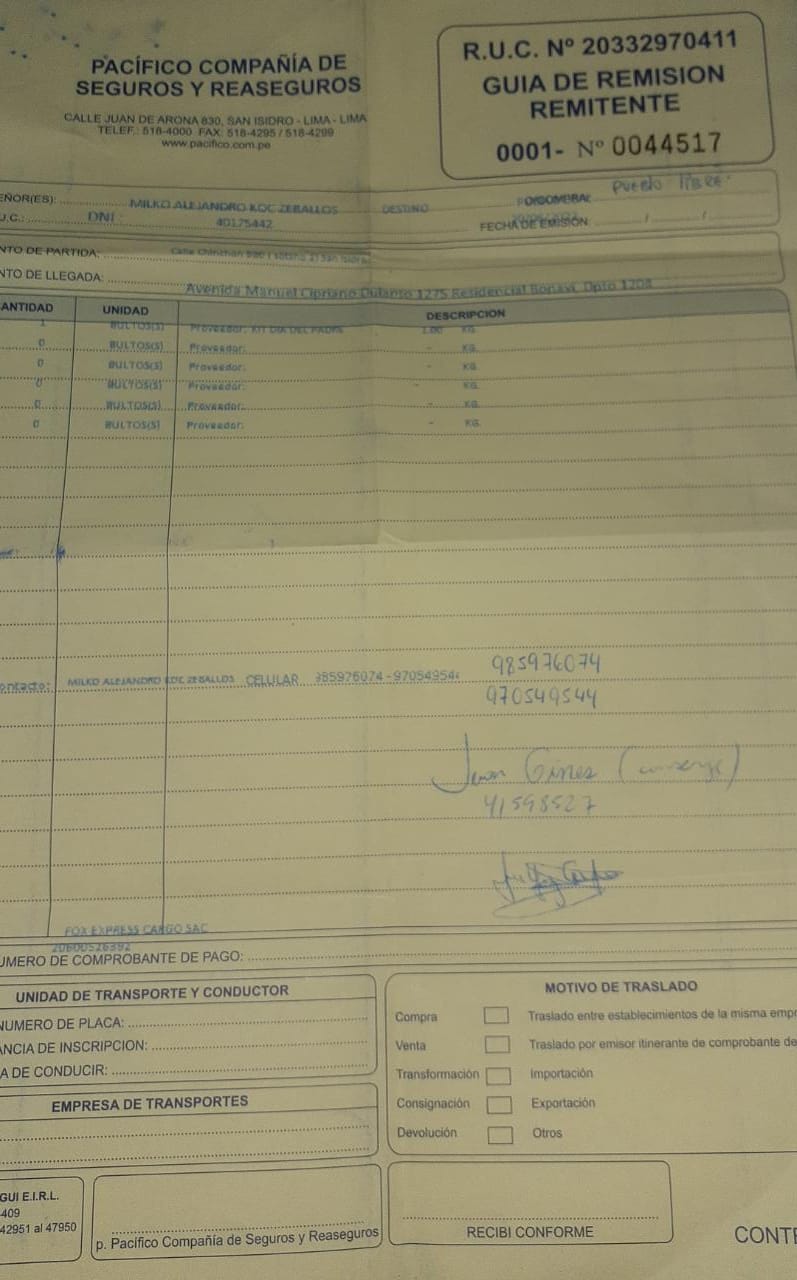 PACÍFICO COMPAÑÍA DE
SEGUROS Y REASEGUROS
CALLE JUAN DE ARONA 830, SAN ISIDRO - LIMA - LIMA
TELEF.: 518-4000 FAX: 518-4295 / 518-4299
www.pacifico.com.pe
R.U.C. Nº 20332970411
GUIA DE REMISION
REMITENTE
0001- Nº 0044517
EÑOR(ES): MILKO ALEJANDRO KOC ZEBALLOS DESTINO Pueblo libre
U.C.: DNI : 40175442 FECHA DE EMISIÓN: / /
NTO DE PARTIDA: Calle Chinchon San Isidro
NTO DE LLEGADA: Avenida Manuel Cipriano Dulanto 1275 Residencial Bonavi, Dpto 1208
ANTIDAD UNIDAD DESCRIPCION
1 BULTOS(S) Proveedor: KIT DIA DEL PADRE 1.00 KG
0 BULTOS(S) Proveedor: - KG
0 BULTOS(S) Proveedor: - KG
0 BULTOS(S) Proveedor: - KG
0 BULTOS(S) Proveedor: - KG
0 BULTOS(S) Proveedor: - KG
1
985976074
ontacto: MILKO ALEJANDRO KOC ZEBALLOS CELULAR 985976074 - 970549544
970549544
Juan Gines (conserje)
41598527
FOX EXPRESS CARGO SAC
20600526392
UMERO DE COMPROBANTE DE PAGO:
UNIDAD DE TRANSPORTE Y CONDUCTOR
NUMERO DE PLACA:
ANCIA DE INSCRIPCION:
A DE CONDUCIR:
EMPRESA DE TRANSPORTES
MOTIVO DE TRASLADO
Compra Traslado entre establecimientos de la misma empr
Venta Traslado por emisor itinerante de comprobante de
Transformación Importación
Consignación Exportación
Devolución Otros
GUI E.I.R.L.
409
42951 al 47950
p. Pacífico Compañía de Seguros y Reaseguros
RECIBI CONFORME
CONTR